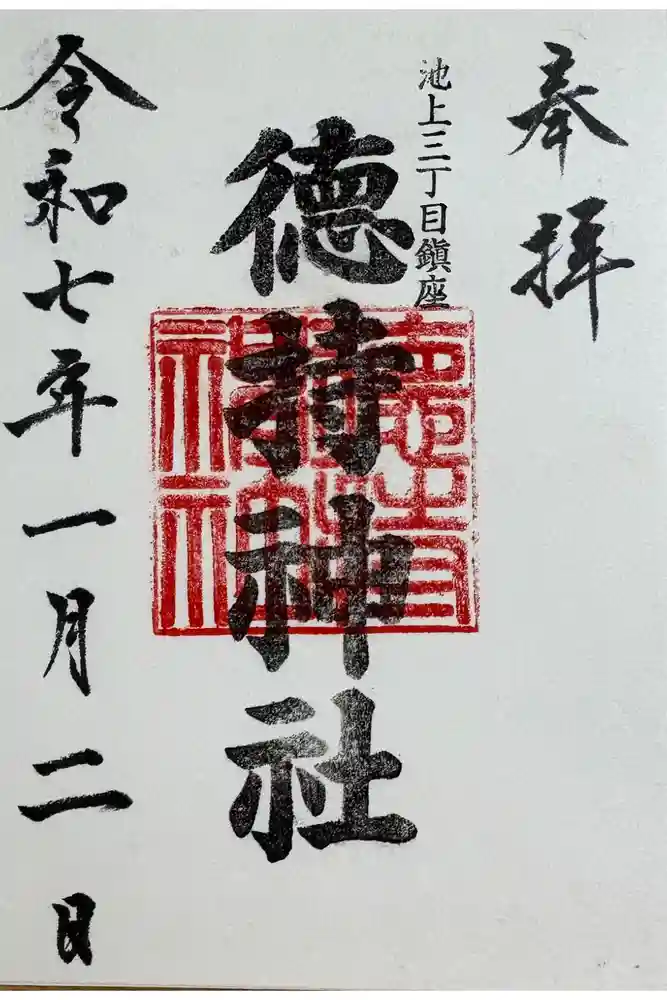 奉拝
池上三丁目鎮座
徳持神社
令和七年一月二日